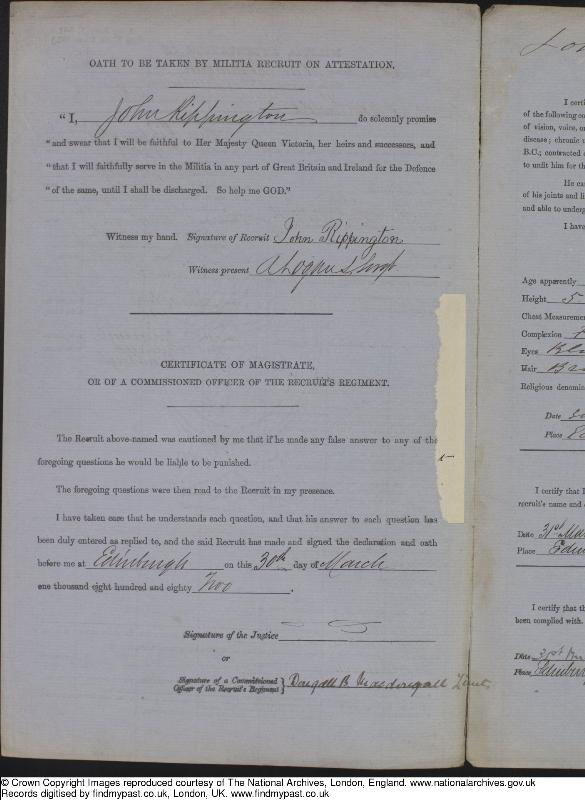 OATH TO BE TAKEN BY MILITIA RECRUIT ON ATTESTATION.
"I, John Rippington do solemnly promise
"and swear that I will be faithful to Her Majesty Queen Victoria, her heirs and successors, and
"that I will faithfully serve in the Militia in any part of Great Britain and Ireland for the Defence
"of the same, until I shall be discharged. So help me GOD."
Witness my hand. Signature of Recruit John Rippington
Witness present
CERTIFICATE OF MAGISTRATE,
OR OF A COMMISSIONED OFFICER OF THE RECRUIT'S REGIMENT.
The Recruit above-named was cautioned by me that if he made any false answer to any of the
foregoing questions he would be liable to be punished.
The foregoing questions were then read to the Recruit in my presence.
I have taken care that he understands each question, and that his answer to each question has
been duly entered as replied to, and the said Recruit has made and signed the declaration and oath
before me at Edinburgh on this 30th day of March
one thousand eight hundred and eighty Two.
Signature of the Justice
or
Signature of a Commissioned
Officer of the Recruit's Regiment } Dougall B Macdougall Lieut
I certi
of the following co
of vision, voice, o
disease; chronic u
B.C.; contracted o
to unfit him for th
He ca
of his joints and li
and able to underg
I have
Age apparently
Height 5
Chest Measuremen
Complexion
Eyes Bl
Hair
Religious denomin
Date
Place
I certify that I
recruit's name and
Date 31st Mar
Place Edin
I certify that th
been complied with.
Date 31st
Place Edinbur
© Crown Copyright Images reproduced courtesy of The National Archives, London, England. www.nationalarchives.gov.uk
Records digitised by findmypast.co.uk, London, UK. www.findmypast.co.uk